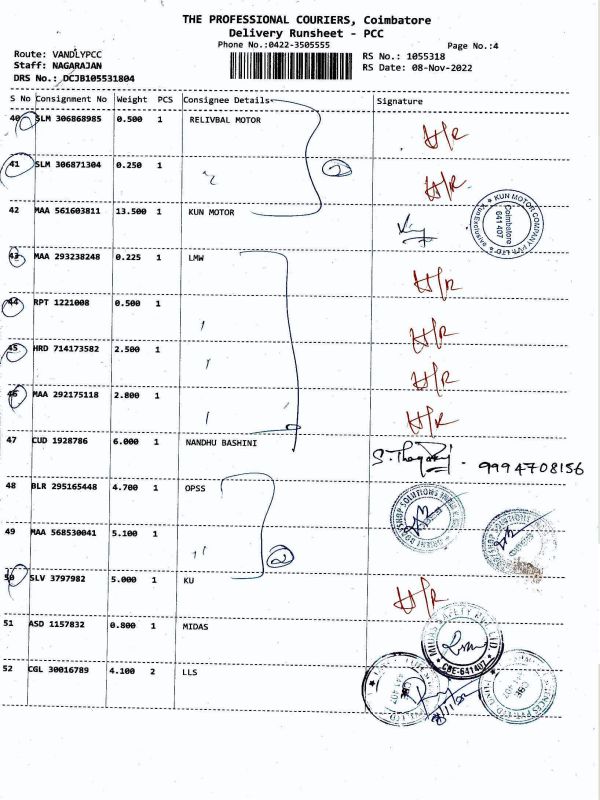 THE PROFESSIONAL COURIERS, Coimbatore
Delivery Runsheet - PCC
Phone No.:0422-3505555
Page No.:4
Route: VANDLYPCC
Staff: NAGARAJAN
DRS No.: DCJB105531804
RS No.: 1055318
RS Date: 08-Nov-2022
S No Consignment No Weight PCS Consignee Details Signature
40 SLM 306868985 0.500 1 RELIVBAL MOTOR H/R
41 SLM 306871304 0.250 1 H/R
2
42 MAA 561603811 13.500 1 KUN MOTOR
KUN MOTOR COMPANY PVT. LTD
Coimbatore
641 407
43 MAA 293238248 0.225 1 LMW H/R
44 RPT 1221008 0.500 1 H/R
45 HRD 714173582 2.500 1 H/R
46 MAA 292175118 2.800 1 H/R
47 CUD 1928786 6.000 1 NANDHU BASHINI 9994708156
48 BLR 295165448 4.700 1 OPSS
49 MAA 568530041 5.100 1
2
50 SLV 3797982 5.000 1 KU H/R
51 ASD 1157832 0.800 1 MIDAS
MIDAS SAFETY PVT. LTD.
CBE-641407
52 CGL 30016789 4.100 2 LLS
CBE
641 407
8/11/22
CBE
641 407